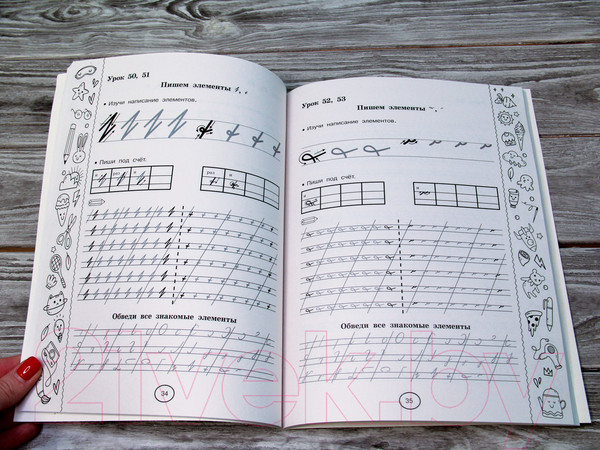 Урок 50, 51
Пишем элементы
• Изучи написание элементов.
• Пиши под счёт.
раз и
раз и
Обведи все знакомые элементы
34
Урок 52, 53
Пишем элементы
• Изучи написание элементов.
• Пиши под счёт.
Обведи все знакомые элементы
35
21vek.by